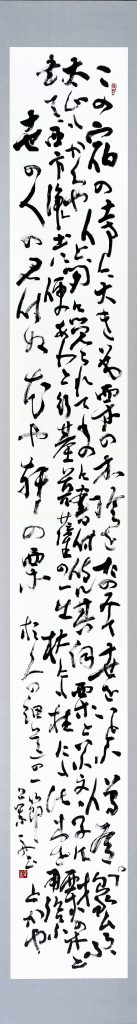 この宿の傍に大きなる栗の木陰をたのみて世をいとふ僧有橡ひろふ
太山もかくやと間に覚られてものに書付侍る其詞栗といふ文字は西の木と
書て西方浄土に便ありと行基菩薩の一生杖にも柱にも此木を用給ふとかや
世の人の見付ぬ花や軒の栗
おくの細道の一節